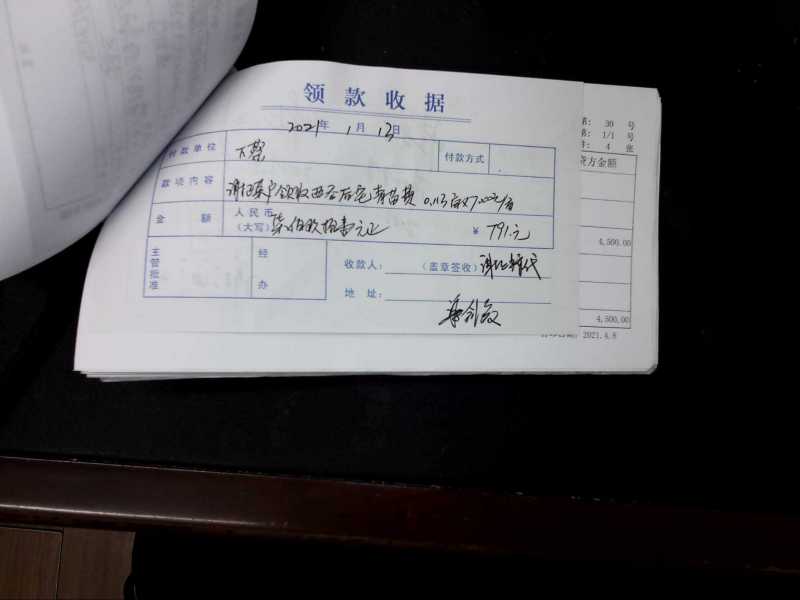 领款收据
2021年 1月 13日
付款单位 下蔡 付款方式
款项内容 领取 青苗费 0.113亩×7000元/亩
金额 人民币(大写) 柒佰玖拾壹元正 ¥ 791.元
主管批准 经办 收款人: (盖章签收)
地址:
第: 30 号
第: 1/1 号
件: 4 张
贷方金额
4,500.00
4,500.00
2021.4.8